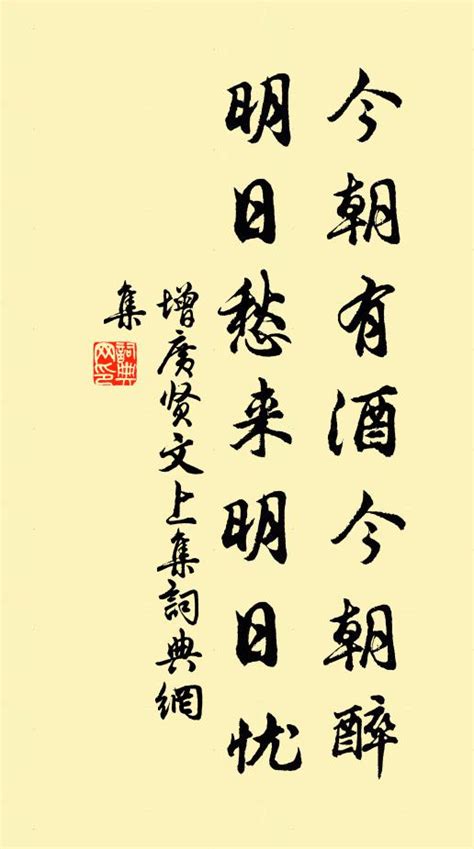 今朝有酒今朝醉
明日愁来明日忧
增广贤文上集詞典網
集
詞典
网印